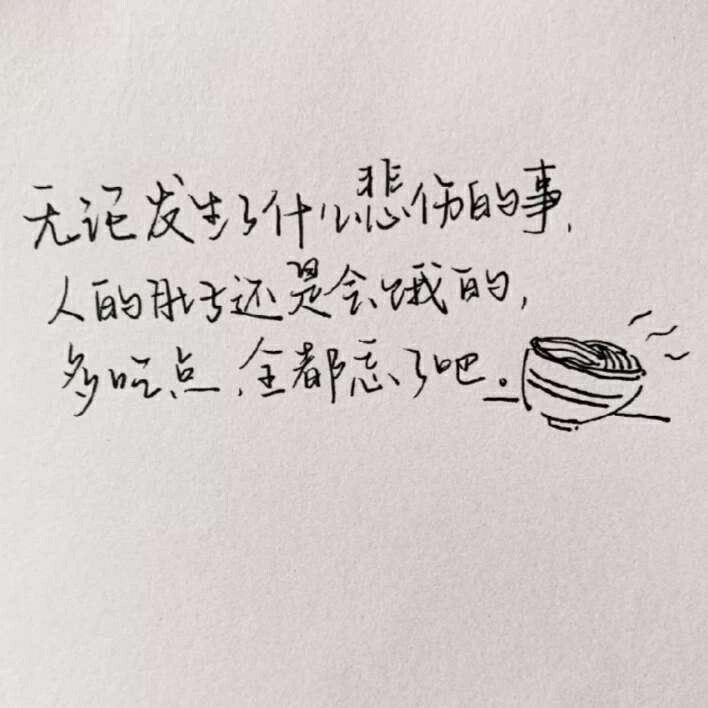 无论发生了什么悲伤的事,
人的肚子还是会饿的,
多吃点,全都忘了吧。